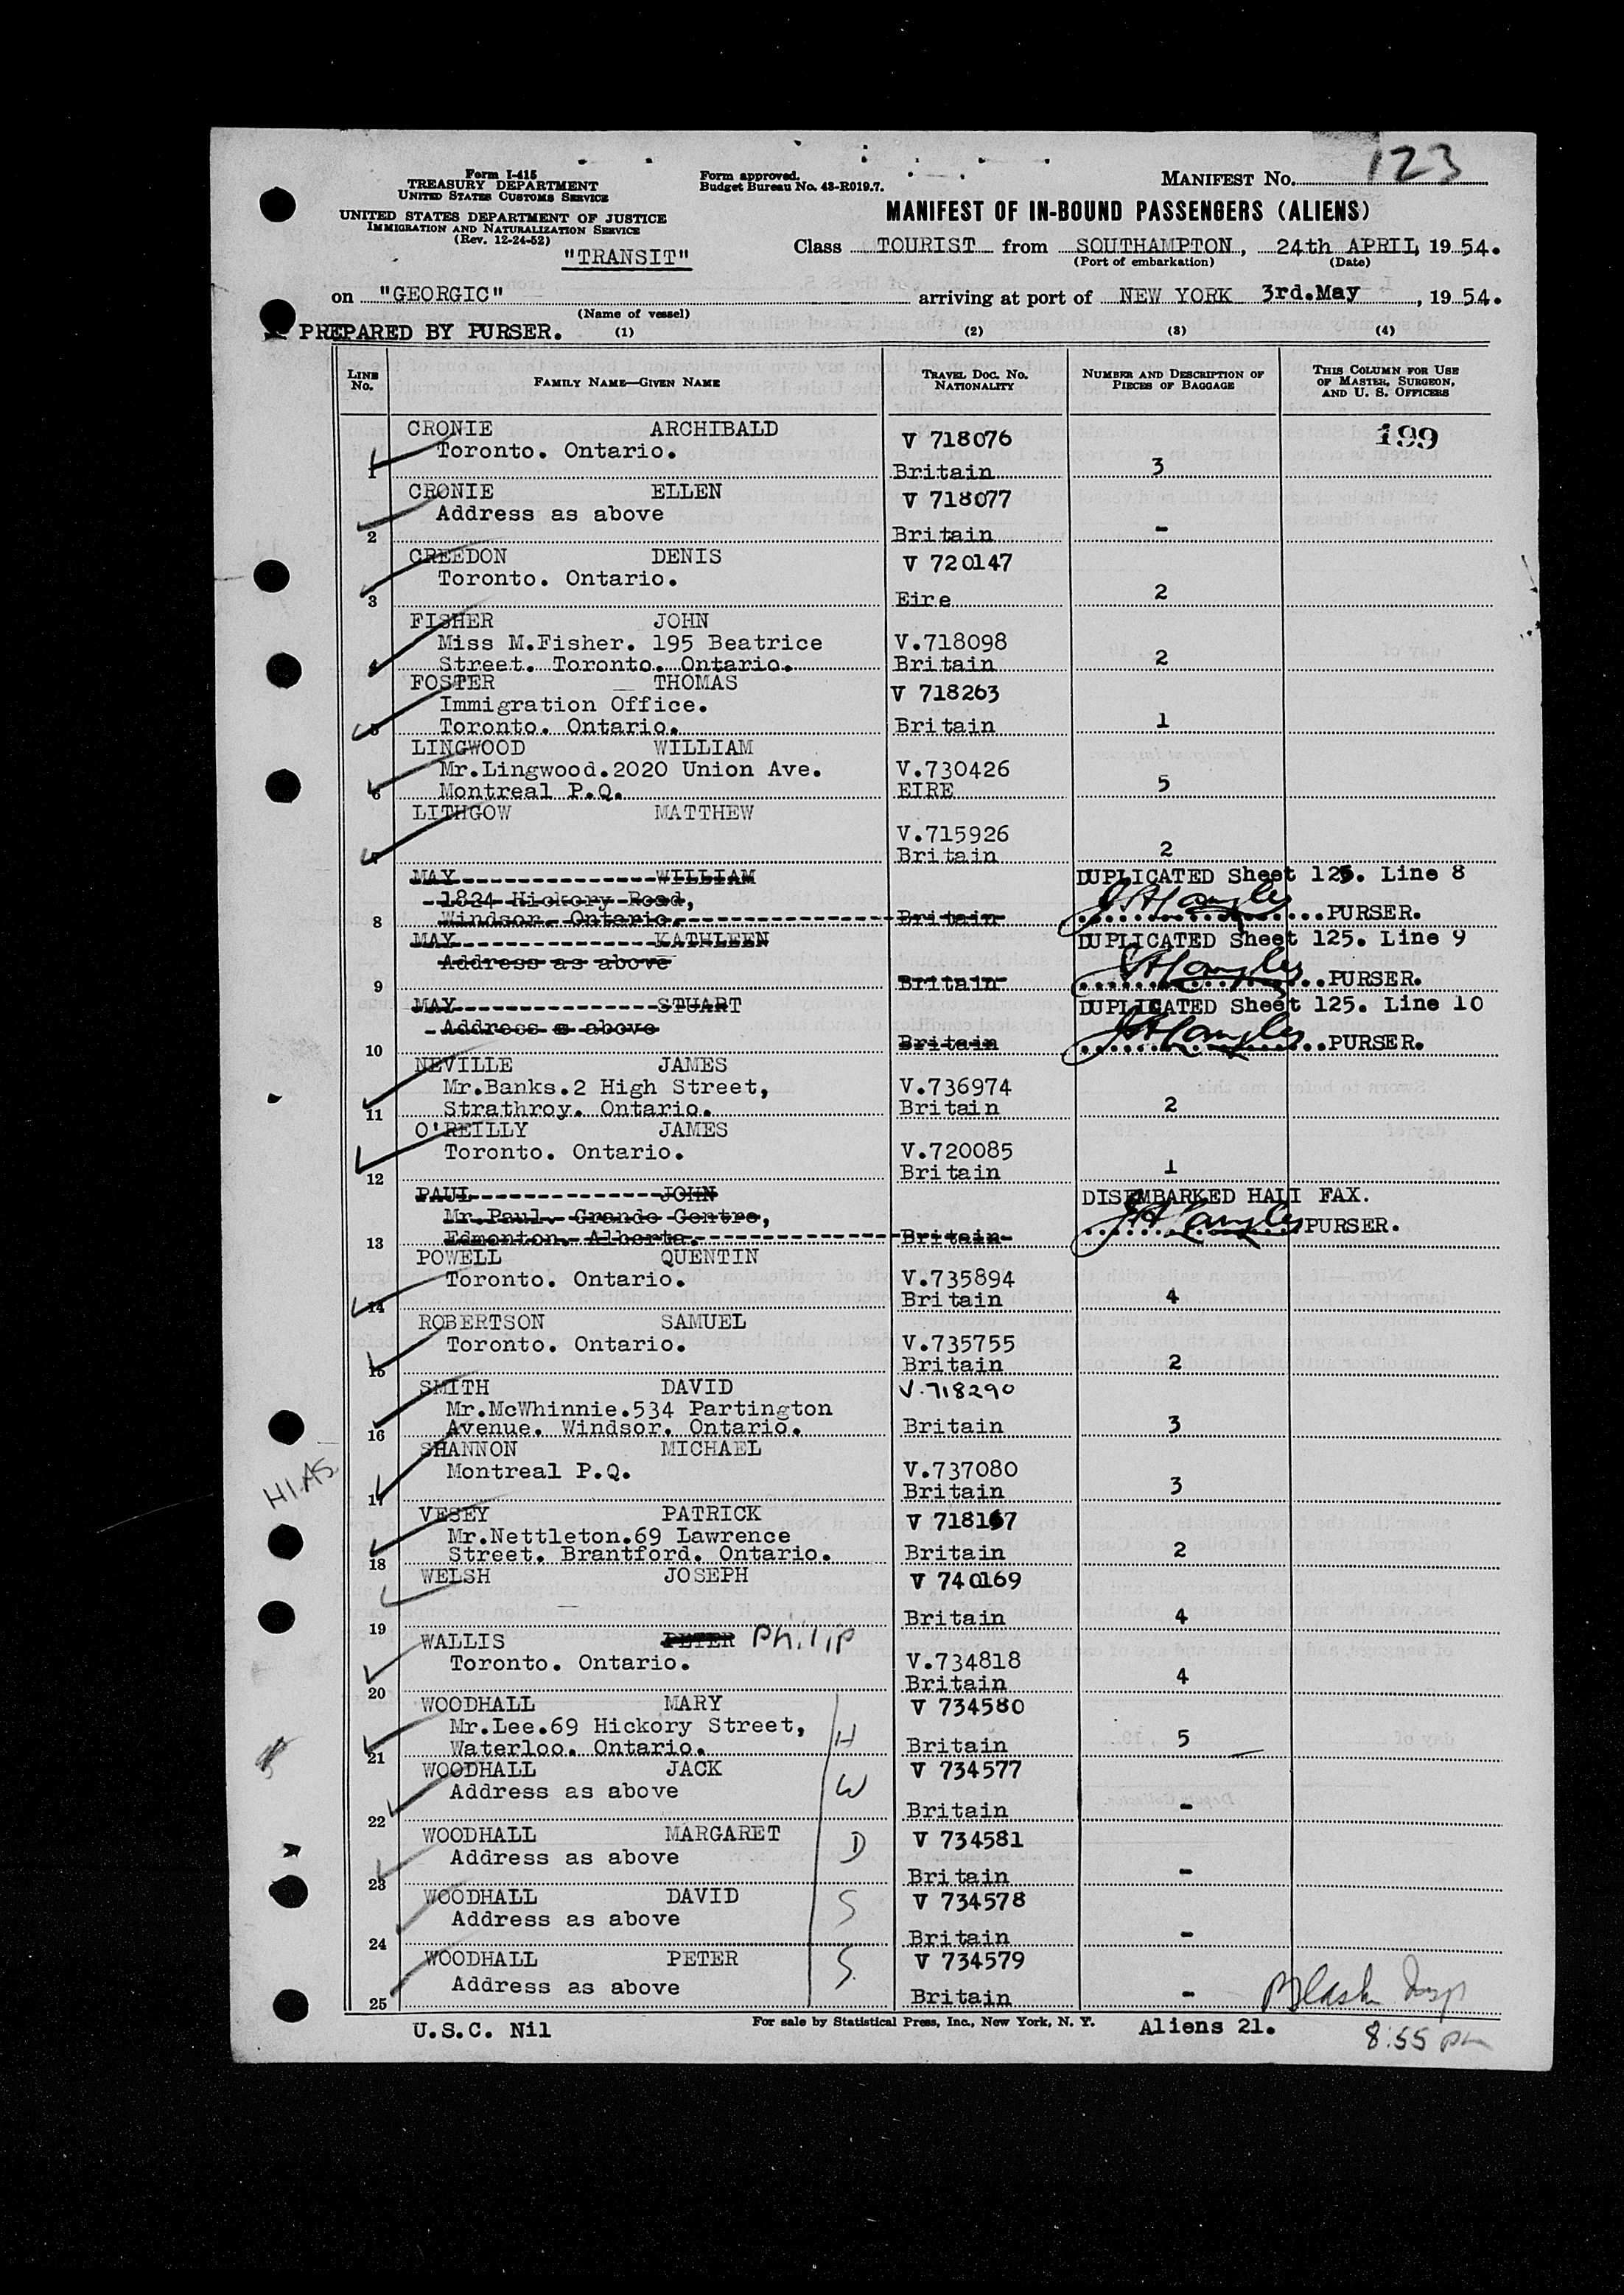 123
Form I-415
TREASURY DEPARTMENT
UNITED STATES CUSTOMS SERVICE
Form approved.
Budget Bureau No. 43-R019.7.
MANIFEST NO.
UNITED STATES DEPARTMENT OF JUSTICE
IMMIGRATION AND NATURALIZATION SERVICE
(Rev. 12-24-52)
MANIFEST OF IN-BOUND PASSENGERS (ALIENS)
"TRANSIT"
Class TOURIST from SOUTHAMPTON, 24th APRIL, 1954.
(Port of embarkation) (Date)
on "GEORGIC" arriving at port of NEW YORK 3rd.May, 1954.
(Name of vessel)
PREPARED BY PURSER. (1) (2) (3) (4)
LINE NO. FAMILY NAME—GIVEN NAME TRAVEL DOC. NO. NATIONALITY NUMBER AND DESCRIPTION OF PIECES OF BAGGAGE THIS COLUMN FOR USE OF MASTER, SURGEON, AND U. S. OFFICERS
CRONIE ARCHIBALD V 718076 199
Toronto. Ontario.
1 Britain 3
CRONIE ELLEN V 718077
Address as above
2 Britain -
CREEDON DENIS V 720147
Toronto. Ontario.
3 Eire 2
FISHER JOHN
Miss M.Fisher. 195 Beatrice V.718098
4 Street. Toronto. Ontario. Britain 2
FOSTER THOMAS V 718263
Immigration Office.
5 Toronto. Ontario. Britain 1
LINGWOOD WILLIAM
Mr.Lingwood.2020 Union Ave. V.730426
6 Montreal P.Q. EIRE 5
LITHGOW MATTHEW
V.715926
7 Britain 2
MAY WILLIAM DUPLICATED Sheet 125. Line 8
1824 Hickory Road,
8 Windsor. Ontario. Britain PURSER.
MAY KATHLEEN DUPLICATED Sheet 125. Line 9
Address as above
9 Britain PURSER.
MAY STUART DUPLICATED Sheet 125. Line 10
Address as above
10 Britain PURSER.
NEVILLE JAMES
Mr.Banks.2 High Street, V.736974
11 Strathroy. Ontario. Britain 2
O'REILLY JAMES
Toronto. Ontario. V.720085
12 Britain 1
PAUL JOHN DISEMBARKED HALIFAX.
Mr.Paul. Grande Centre,
13 Edmonton. Alberta. Britain PURSER.
POWELL QUENTIN
Toronto. Ontario. V.735894
14 Britain 4
ROBERTSON SAMUEL
Toronto. Ontario. V.735755
15 Britain 2
SMITH DAVID V.718290
Mr.McWhinnie.534 Partington
16 Avenue. Windsor. Ontario. Britain 3
SHANNON MICHAEL
HIAS Montreal P.Q. V.737080
17 Britain 3
VESEY PATRICK V 718167
Mr.Nettleton.69 Lawrence
18 Street. Brantford. Ontario. Britain 2
WELSH JOSEPH V 740169
19 Britain 4
WALLIS PETER Philip
Toronto. Ontario. V.734818
20 Britain 4
WOODHALL MARY V 734580
Mr.Lee.69 Hickory Street, H
21 Waterloo. Ontario. Britain 5
WOODHALL JACK V 734577
Address as above W
22 Britain -
WOODHALL MARGARET V 734581
Address as above D
23 Britain -
WOODHALL DAVID V 734578
Address as above S
24 Britain -
WOODHALL PETER V 734579
Address as above S
25 Britain -
U.S.C. Nil For sale by Statistical Press, Inc., New York, N. Y. Aliens 21.
8:55 pm